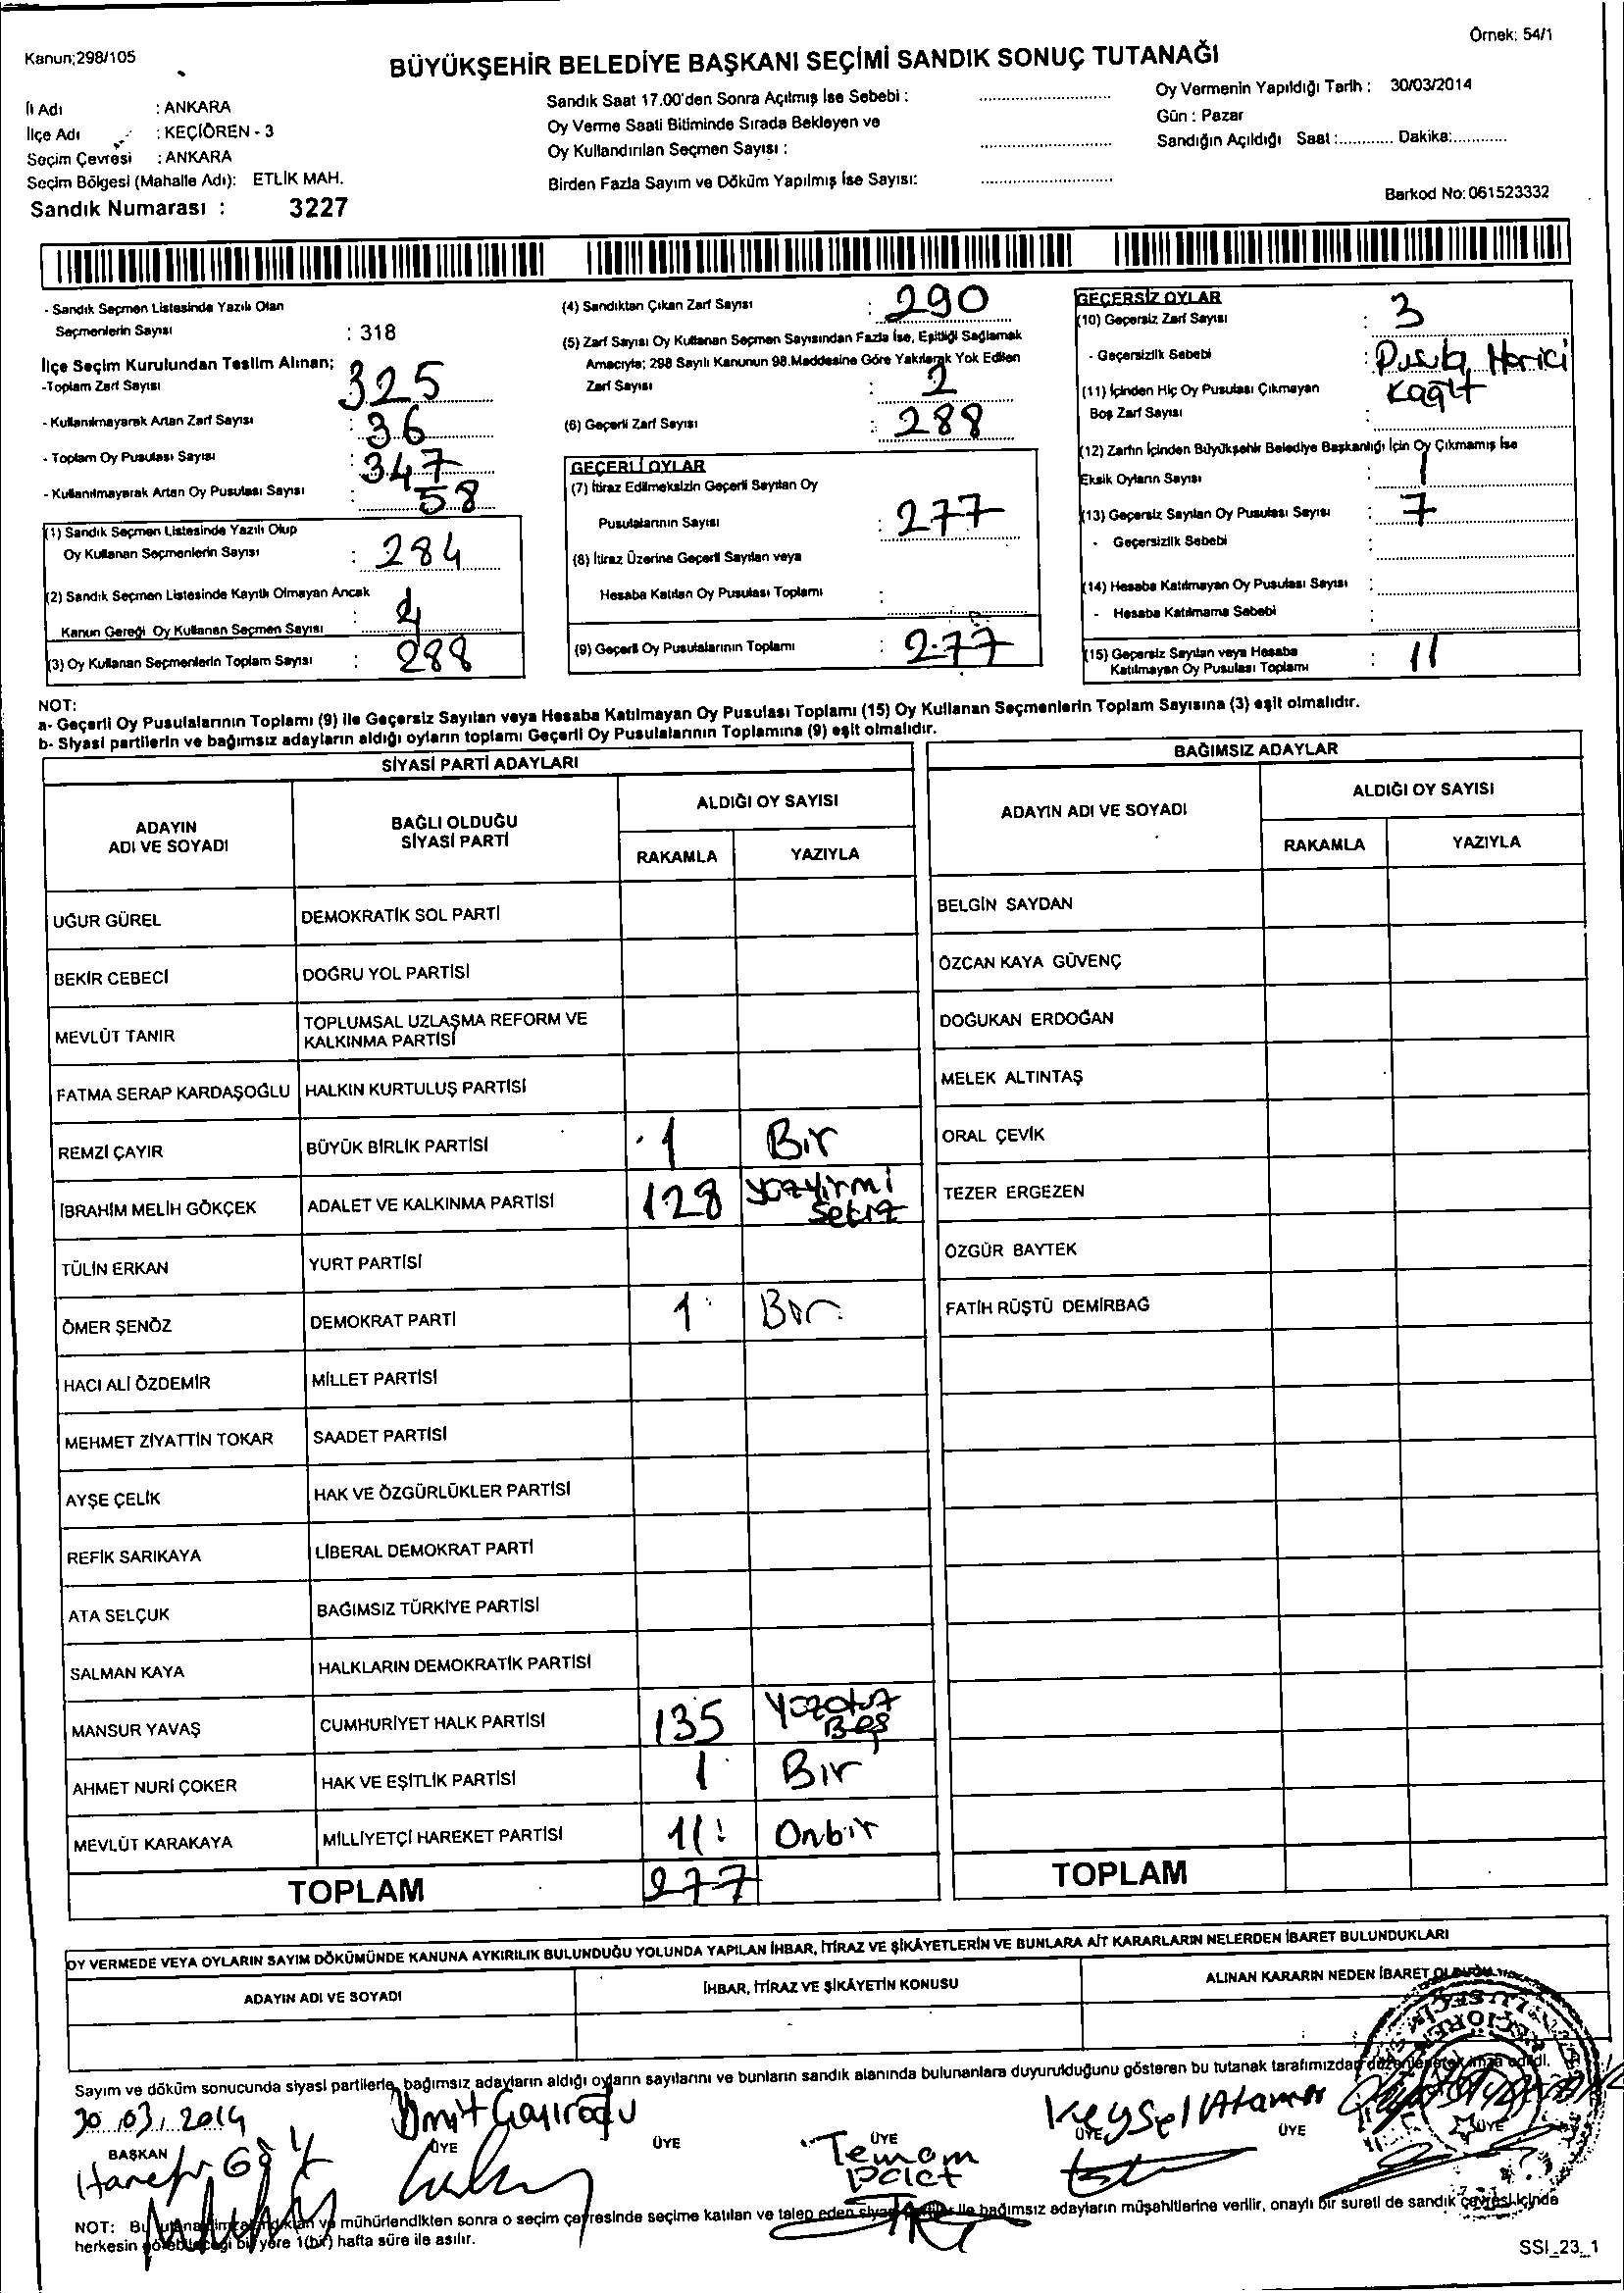 Kanun;298/105
Örnek: 54/1
BÜYÜKŞEHİR BELEDİYE BAŞKANI SEÇİMİ SANDIK SONUÇ TUTANAĞI
İl Adı : ANKARA
İlçe Adı : KEÇİÖREN - 3
Seçim Çevresi : ANKARA
Seçim Bölgesi (Mahalle Adı): ETLİK MAH.
Sandık Numarası : 3227
Sandık Saat 17.00'den Sonra Açılmış İse Sebebi :
Oy Verme Saati Bitiminde Sırada Bekleyen ve
Oy Kullandırılan Seçmen Sayısı :
Birden Fazla Sayım ve Döküm Yapılmış İse Sayısı:
Oy Vermenin Yapıldığı Tarih : 30/03/2014
Gün : Pazar
Sandığın Açıldığı Saat :............ Dakika:............
Barkod No: 061523332
- Sandık Seçmen Listesinde Yazılı Olan
Seçmenlerin Sayısı : 318
İlçe Seçim Kurulundan Teslim Alınan;
-Toplam Zarf Sayısı 325
- Kullanılmayarak Artan Zarf Sayısı : 36
- Toplam Oy Pusulası Sayısı : 347
- Kullanılmayarak Artan Oy Pusulası Sayısı : 58
(1) Sandık Seçmen Listesinde Yazılı Olup
Oy Kullanan Seçmenlerin Sayısı : 284
(2) Sandık Seçmen Listesinde Kayıtlı Olmayan Ancak
Kanun Gereği Oy Kullanan Seçmen Sayısı : 4
(3) Oy Kullanan Seçmenlerin Toplam Sayısı : 288
(4) Sandıktan Çıkan Zarf Sayısı : 290
(5) Zarf Sayısı Oy Kullanan Seçmen Sayısından Fazla İse, Eşitliği Sağlamak
Amacıyla; 298 Sayılı Kanunun 98.Maddesine Göre Yakılarak Yok Edilen
Zarf Sayısı : 2
(6) Geçerli Zarf Sayısı : 288
GEÇERLİ OYLAR
(7) İtiraz Edilmeksizin Geçerli Sayılan Oy
Pusulalarının Sayısı : 277
(8) İtiraz Üzerine Geçerli Sayılan veya
Hesaba Katılan Oy Pusulası Toplamı :
(9) Geçerli Oy Pusulalarının Toplamı : 277
GEÇERSİZ OYLAR
(10) Geçersiz Zarf Sayısı : 3
- Geçersizlik Sebebi : Pusula Harici
Kağıt
(11) İçinden Hiç Oy Pusulası Çıkmayan
Boş Zarf Sayısı :
(12) Zarfın İçinden Büyükşehir Belediye Başkanlığı İçin Oy Çıkmamış İse
Eksik Oyların Sayısı : 1
(13) Geçersiz Sayılan Oy Pusulası Sayısı : 7
- Geçersizlik Sebebi :
(14) Hesaba Katılmayan Oy Pusulası Sayısı :
- Hesaba Katılmama Sebebi :
(15) Geçersiz Sayılan veya Hesaba
Katılmayan Oy Pusulası Toplamı : 11
NOT:
a- Geçerli Oy Pusulalarının Toplamı (9) ile Geçersiz Sayılan veya Hesaba Katılmayan Oy Pusulası Toplamı (15) Oy Kullanan Seçmenlerin Toplam Sayısına (3) eşit olmalıdır.
b- Siyasi partilerin ve bağımsız adayların aldığı oyların toplamı Geçerli Oy Pusulalarının Toplamına (9) eşit olmalıdır.
SİYASİ PARTİ ADAYLARI
ADAYIN ADI VE SOYADI
BAĞLI OLDUĞU SİYASİ PARTİ
ALDIĞI OY SAYISI
RAKAMLA YAZIYLA
UĞUR GÜREL DEMOKRATİK SOL PARTİ
BEKİR CEBECİ DOĞRU YOL PARTİSİ
MEVLÜT TANIR TOPLUMSAL UZLAŞMA REFORM VE
KALKINMA PARTİSİ
FATMA SERAP KARDAŞOĞLU HALKIN KURTULUŞ PARTİSİ
REMZİ ÇAYIR BÜYÜK BİRLİK PARTİSİ 1 Bir
İBRAHİM MELİH GÖKÇEK ADALET VE KALKINMA PARTİSİ 128 yüzyirmi
sekiz
TÜLİN ERKAN YURT PARTİSİ
ÖMER ŞENÖZ DEMOKRAT PARTİ 1 Bir
HACI ALİ ÖZDEMİR MİLLET PARTİSİ
MEHMET ZİYATTİN TOKAR SAADET PARTİSİ
AYŞE ÇELİK HAK VE ÖZGÜRLÜKLER PARTİSİ
REFİK SARIKAYA LİBERAL DEMOKRAT PARTİ
ATA SELÇUK BAĞIMSIZ TÜRKİYE PARTİSİ
SALMAN KAYA HALKLARIN DEMOKRATİK PARTİSİ
MANSUR YAVAŞ CUMHURİYET HALK PARTİSİ 135 Yüzotuz
Beş
AHMET NURİ ÇOKER HAK VE EŞİTLİK PARTİSİ 1 Bir
MEVLÜT KARAKAYA MİLLİYETÇİ HAREKET PARTİSİ 11 Onbir
TOPLAM 277
BAĞIMSIZ ADAYLAR
ADAYIN ADI VE SOYADI
ALDIĞI OY SAYISI
RAKAMLA YAZIYLA
BELGİN SAYDAN
ÖZCAN KAYA GÜVENÇ
DOĞUKAN ERDOĞAN
MELEK ALTINTAŞ
ORAL ÇEVİK
TEZER ERGEZEN
ÖZGÜR BAYTEK
FATİH RÜŞTÜ DEMİRBAĞ
TOPLAM
OY VERMEDE VEYA OYLARIN SAYIM DÖKÜMÜNDE KANUNA AYKIRILIK BULUNDUĞU YOLUNDA YAPILAN İHBAR, İTİRAZ VE ŞİKÂYETLERİN VE BUNLARA AİT KARARLARIN NELERDEN İBARET BULUNDUKLARI
ADAYIN ADI VE SOYADI
İHBAR, İTİRAZ VE ŞİKÂYETİN KONUSU
ALINAN KARARIN NEDEN İBARET
Sayım ve döküm sonucunda siyasi partilerle, bağımsız adayların aldığı oyların sayılarını ve bunların sandık alanında bulunanlara duyurulduğunu gösteren bu tutanak tarafımızdan düzenlenerek imza edildi.
30.03.2014 Ümit Veysel
BAŞKAN ÜYE ÜYE ÜYE ÜYE ÜYE ÜYE
NOT: Bu mühürlendikten sonra o seçim çevresinde seçime katılan ve talep eden siyasi partiler ile bağımsız adayların müşahitlerine verilir, onaylı bir sureti de sandık çevresi içinde
herkesin görebileceği bir yere 1(bir) hafta süre ile asılır.
SSI_23_1